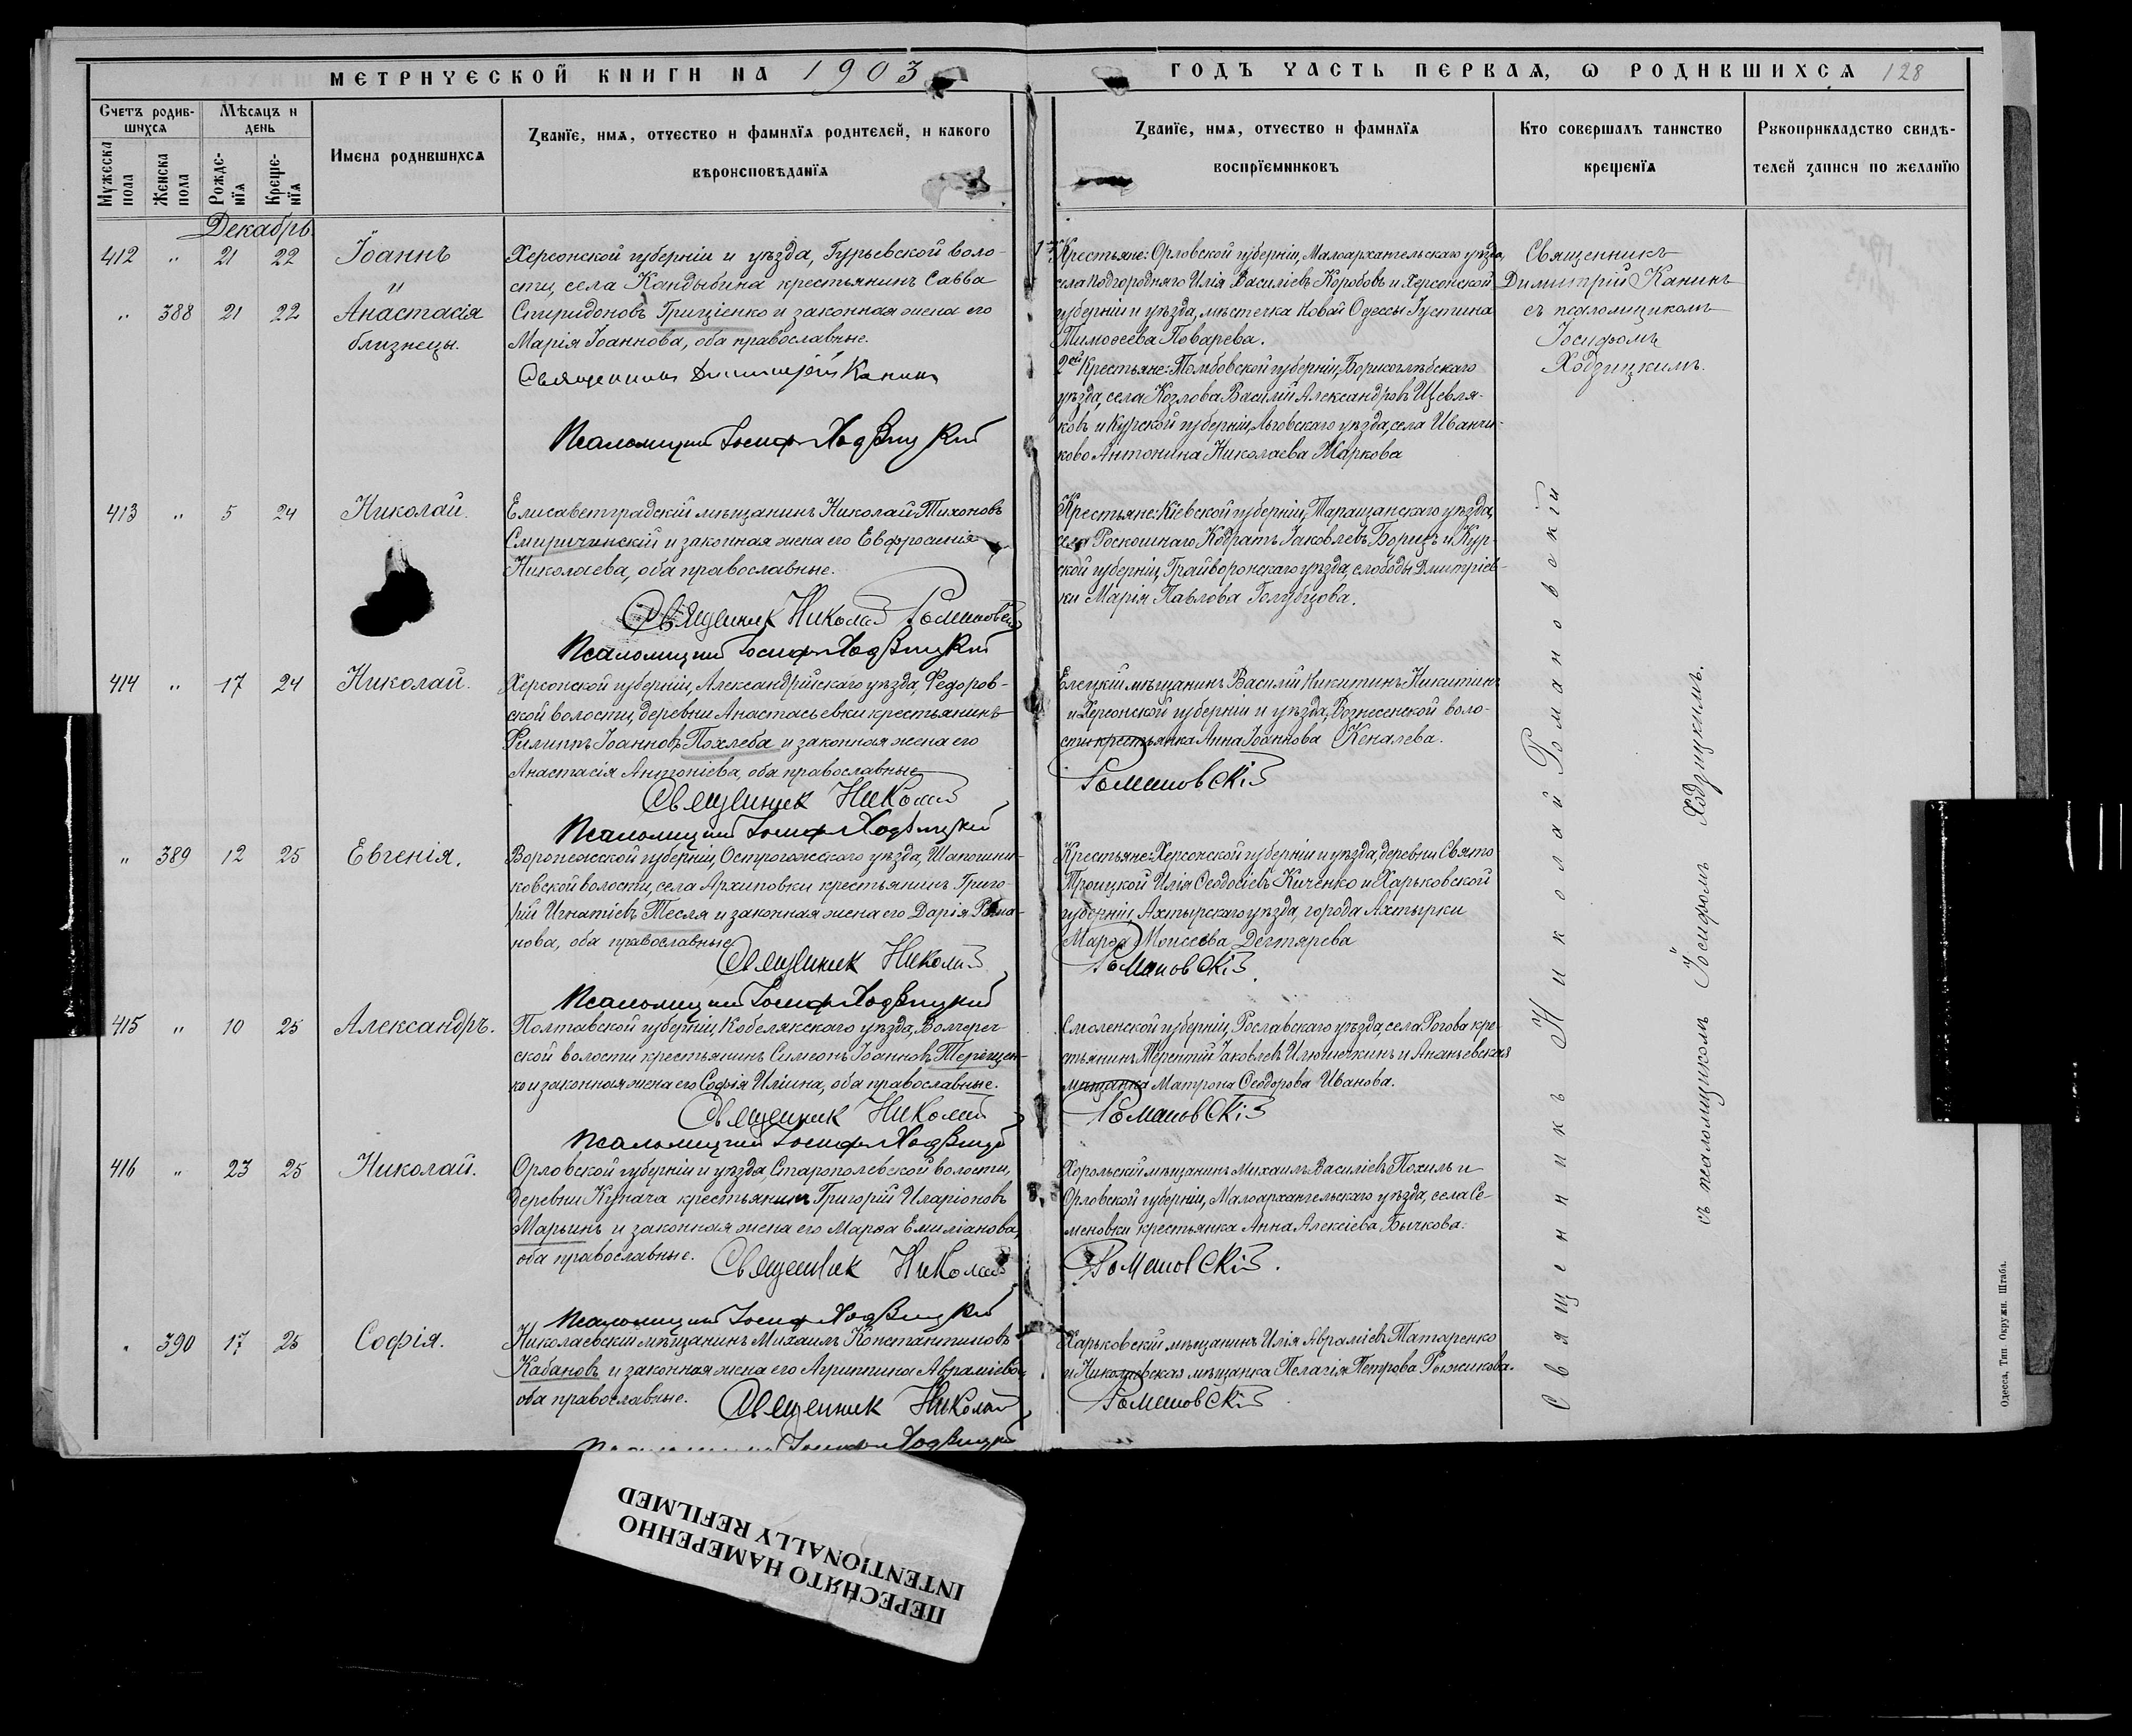 МЕТРИЧЕСКОЙ КНИГИ НА 1903
ГОДЪ ЧАСТЬ ПЕРВАЯ, Ѡ РОДИВШИХСЯ 128
Счетъ родив-
шихся
Мѣсяцъ и
день
Мужеска пола
Женска пола
Рожде-
нїя
Креще-
нїя
Имена родившихся
Званїе, имя, отчество и фамилїя родителей, и какого
вѣроисповѣданїя
Званїе, имя, отчество и фамилїя
воспрїемниковъ
Кто совершалъ таинство
крещенїя
Рукоприкладство свидѣ-
телей записи по желанїю
Декабрь.
412 " 21 22 Іоаннъ
и
" 388 21 22 Анастасія
близнецы.
Херсонской губерніи и уѣзда, Гурьевской воло-
сти, села Кандыбина крестьянинъ Савва
Спиридоновъ Грищенко и законная жена его
Марія Іоаннова, оба православные.
Священникъ Димитрій Канинъ
Псаломщикъ Іосифъ Ходзицкій
1й Крестьяне: Орловской губерніи, Малоархангельскаго уѣзда,
села Подгородняго Илія Василіевъ Коробовъ и Херсонской
губерніи и уѣзда, мѣстечка Новой Одессы Іустина
Тимоѳеева Поварева.
2ой Крестьяне: Тамбовской губерніи, Борисоглѣбскаго
уѣзда, села Козлова Василій Александровъ Щевля-
ковъ и Курской губерніи, Льговскаго уѣзда, села Иванчи-
ково Антонина Николаева Маркова
Священникъ
Димитрій Канинъ
съ псаломщикомъ
Іосифомъ
Ходзицкимъ.
413 " 5 24 Николай.
Елисаветградскій мѣщанинъ Николай Тихоновъ
Смиричинскій и законная жена его Евфросинія
Николаева, оба православные.
Священникъ Николай Романовскій
Псаломщикъ Іосифъ Ходзицкій
Крестьяне: Кіевской губерніи, Таращанскаго уѣзда,
села Роскошнаго Кодратъ Іаковлевъ Борицъ и Кур-
ской губерніи, Грайворонскаго уѣзда, слободы Дмитріев-
ки Марія Павлова Голубцова.
414 " 17 24 Николай.
Херсонской губерніи, Александрійскаго уѣзда, Федоров-
ской волости, деревни Анастасьевки крестьянинъ
Филиппъ Іоанновъ Похлеба и законная жена его
Анастасія Антоніева, оба православные
Священникъ Николай
Псаломщикъ Іосифъ Ходзицкій
Елецкій мѣщанинъ Василій Никитинъ Никитинъ
и Херсонской губерніи и уѣзда, Вознесенской воло-
сти крестьянка Анна Іоаннова Кеналева.
Романовскій
" 389 12 25 Евгенія.
Воронежской губерніи, Острогожскаго уѣзда, Шапошни-
ковской волости, села Архиповки крестьянинъ Григо-
рій Игнатіевъ Тесля и законная жена его Дарія Рома-
нова, оба православные
Священникъ Николай
Псаломщикъ Іосифъ Ходзицкій
Крестьяне: Херсонской губерніи и уѣзда, деревни Свято-
Троицкой Илія Ѳеодосіевъ Киченко и Харьковской
губерніи, Ахтырскаго уѣзда, города Ахтырки
Марѳа Моисеева Дегтярева
Романовскій.
415 " 10 25 Александръ.
Полтавской губерніи, Кобелякскаго уѣзда,
ской волости крестьянинъ Симеонъ Іоанновъ Терещен-
ко и законная жена его Софія Иліина, оба православные.
Священникъ Николай
Псаломщикъ Іосифъ Ходзицкій
Смоленской губерніи, Рославскаго уѣзда, села Рогова кре-
стьянинъ Терентій Іаковлевъ Илюшечкинъ и Ананьевская
мѣщанка Матрона Ѳеодорова Иванова.
Романовскій
416 " 23 25 Николай.
Орловской губерніи и уѣзда, Старополевской волости,
деревни Кунача крестьянинъ Григорій Иларіоновъ
Марьинъ и законная жена его Марѳа Емиліанова,
оба православные. Священникъ Николай
Псаломщикъ Іосифъ Ходзицкій
Хорольскій мѣщанинъ Михаилъ Василіевъ Похилъ и
Орловской губерніи, Малоархангельскаго уѣзда, села Се-
меновки крестьянка Анна Алексіева Бычкова.
Романовскій.
" 390 17 25 Софія.
Николаевскій мѣщанинъ Михаилъ Константиновъ
Кабановъ и законная жена его Агриппина Авраміева,
оба православные. Священникъ Николай
Псаломщикъ Іосифъ Ходзицкій
Харьковскій мѣщанинъ Илія Авраміевъ Татаренко
и Николаевская мѣщанка Пелагія Петрова Рыжикова.
Романовскій
Священникъ Николай Романовскій
съ псаломщикомъ Іосифомъ Ходзицкимъ.
Одесса, Тип. Окружн. Штаба.
ПЕРЕСНЯТО НАМЕРЕННО
INTENTIONALLY REFILMED